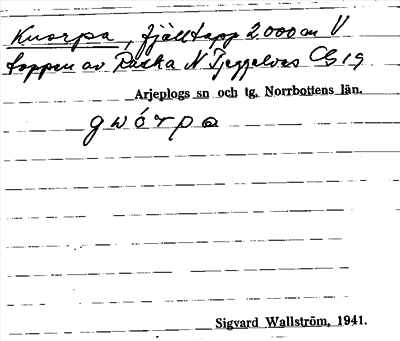 Knorpa, fjälltopp 2000 m V
toppen av Paska N Tjeggelvas Cg 19
Arjeplogs sn och tg. Norrbottens län.
gwórpa
Sigvard Wallström, 1941.